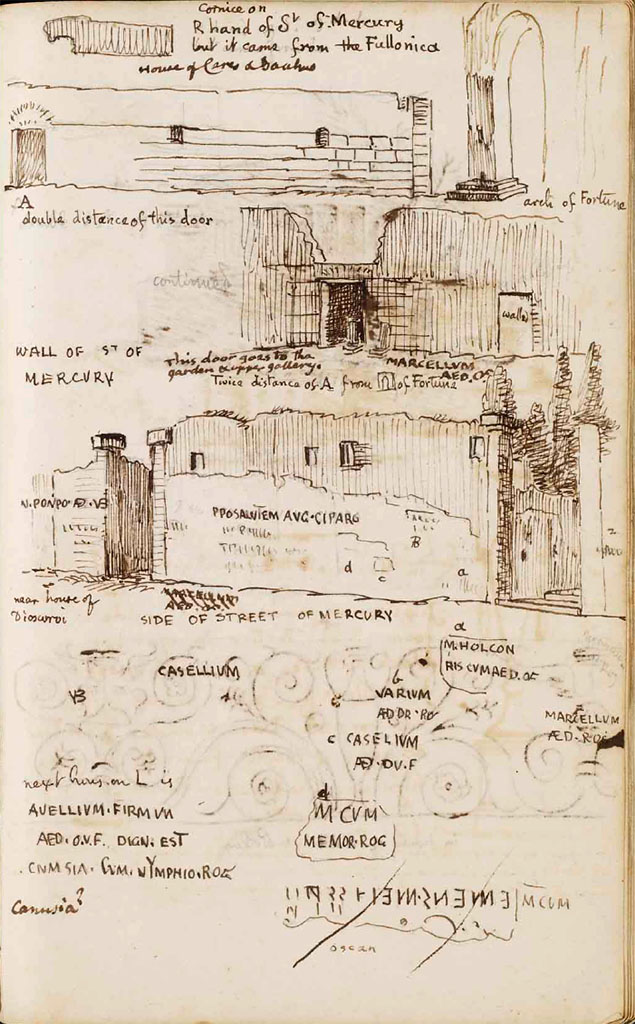 Cornice on
R hand of St of Mercury
but it came from the Fullonica
House of Ceres & Bacchus
arch of Fortune
A
double distance of this door
continued
walled
WALL OF ST OF
MERCURY
This door goes to the
garden & upper gallery.
MARCELLVM
AED. OF
Twice distance of A from of Fortune
N. PONPO ÆD. VB
PPOSALUTEM AVG. CIPARG
B
d
c
a
near house of
Dioscuroi
SIDE OF STREET OF MERCURY
a
M. HOLCON
RIS CVM AED. OF
CASELLIUM
VB
VARIUM
ÆD DR. RO
MARCELLUM
ÆD. ROG
c CASELIUM
ÆD. DU. F
next house on L is
AUELLIUM. FIRMUM
AED. O.V.F. DIGN. EST
CNMSIA. CUM. NYMPHIO. ROG
d
M CVM
MEMOR. ROG
Canusia?
M CVM
oscan